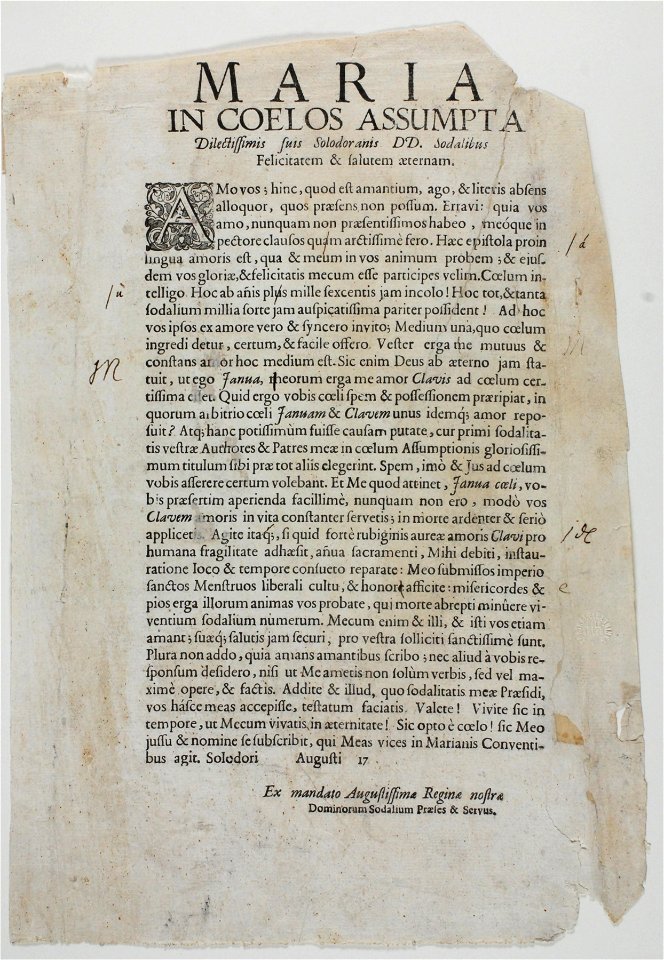 MARIA
IN COELOS ASSUMPTA
Dilectissimis suis Solodoranis DD. Sodalibus
Felicitatem & salutem æternam.
AMo vos; hinc, quod est amantium, ago, & literis absens
alloquor, quos præsens non possum. Erravi: quia vos
amo, nunquam non præsentissimos habeo, meóque in
pectore clausos quam arctissimè fero. Hæc epistola proin
lingua amoris est, qua & meum in vos animum probem; & ejus-
dem vos gloriæ, & felicitatis mecum esse participes velim. Cœlum in-
telligo Hoc ab añis plus mille sexcentis jam incolo! Hoc tot, & tanta
sodalium millia sorte jam auspicatissima pariter possident! Ad hoc
vos ipsos ex amore vero & syncero invito; Medium una, quo cœlum
ingredi detur, certum, & facile offero. Vester erga me mutuus &
constans amor hoc medium est. Sic enim Deus ab æterno jam sta-
tuit, ut ego Janua, meorum erga me amor Clavis ad cœlum cer-
tissima esset. Quid ergo vobis cœli spem & possessionem præripiat, in
quorum arbitrio cœli Januam & Clavem unus idemq; amor repo-
suit? Atq; hanc potissimùm fuisse causam putate, cur primi sodalita-
tis vestræ Authores & Patres meæ in cœlum Assumptionis gloriosissi-
mum titulum sibi præ tot aliis elegerint. Spem, imò & Jus ad cœlum
vobis asserere certum volebant. Et Me quod attinet, Janua cœli, vo-
bis præsertim aperienda facillimè, nunquam non ero, modò vos
Clavem amoris in vita constanter servetis; in morte ardenter & seriò
applicetis. Agite itaq;, si quid fortè rubiginis aureæ amoris Clavi pro
humana fragilitate adhæsit, añua sacramenti, Mihi debiti, instau-
ratione loco & tempore consueto reparate: Meo submissos imperio
sanctos Menstruos liberali cultu, & honore afficite: misericordes &
pios erga illorum animas vos probate, qui morte abrepti minûere vi-
ventium sodalium numerum. Mecum enim & illi, & isti vos etiam
amant; suæq; salutis jam securi, pro vestra solliciti sanctissimè sunt.
Plura non addo, quia amans amantibus scribo; nec aliud à vobis re-
sponsum desidero, nisi ut Me ametis non solùm verbis, sed vel ma-
ximè opere, & factis. Addite & illud, quo sodalitatis meæ Præsidi,
vos hásce meas accepisse, testatum faciatis. Valete! Vivite sic in
tempore, ut Mecum vivatis in æternitate! Sic opto è cœlo! sic Meo
jussu & nomine se subscribit, qui Meas vices in Marianis Conventi-
bus agit. Solodori Augusti 17
Ex mandato Augustissimæ Reginæ nostræ
Dominorum Sodalium Præses & Servus.